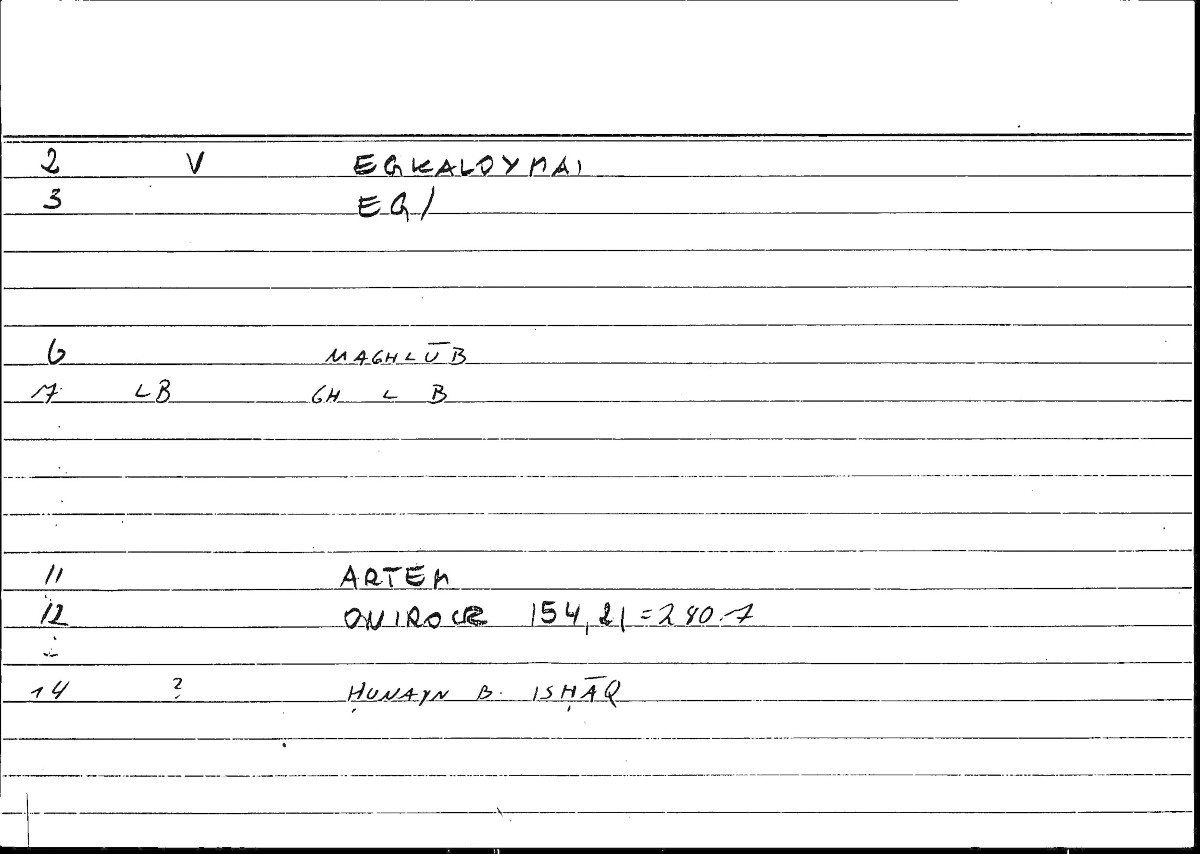 2 V EGKALOYMAI
3 EG/
6 MAGHLŪB
7 LB GH L B
11 ARTEM
12 ONIROCR 154,21=280.7
14 ? ḤUNAYN B. ISḤĀQ